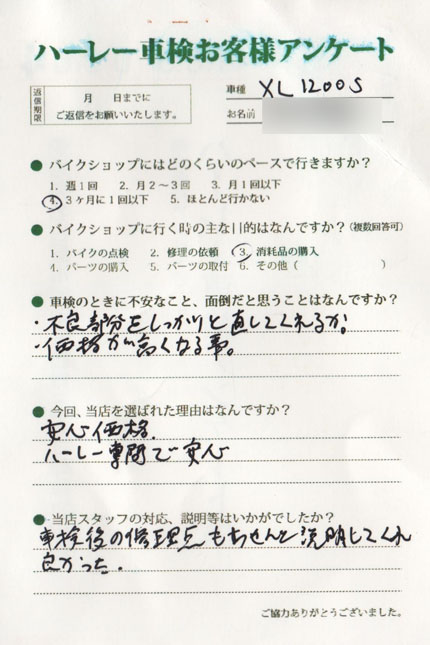 ハーレー車検お客様アンケート
返信期限
月 日までに
ご返信をお願いいたします。
車種 XL1200S
お名前
● バイクショップにはどのくらいのペースで行きますか?
1. 週1回 2. 月2〜3回 3. 月1回以下
4. 3ヶ月に1回以下 5. ほとんど行かない
● バイクショップに行く時の主な目的はなんですか?(複数回答可)
1. バイクの点検 2. 修理の依頼 3. 消耗品の購入
4. パーツの購入 5. パーツの取付 6. その他( )
● 車検のときに不安なこと、面倒だと思うことはなんですか?
・不良部分をしっかりと直してくれるか。
・価格が高くなる事。
● 今回、当店を選ばれた理由はなんですか?
安心価格.
ハーレー専門で安心
● 当店スタッフの対応、説明等はいかがでしたか?
車検後の修理点もちゃんと説明してくれ
良かった.
ご協力ありがとうございました。